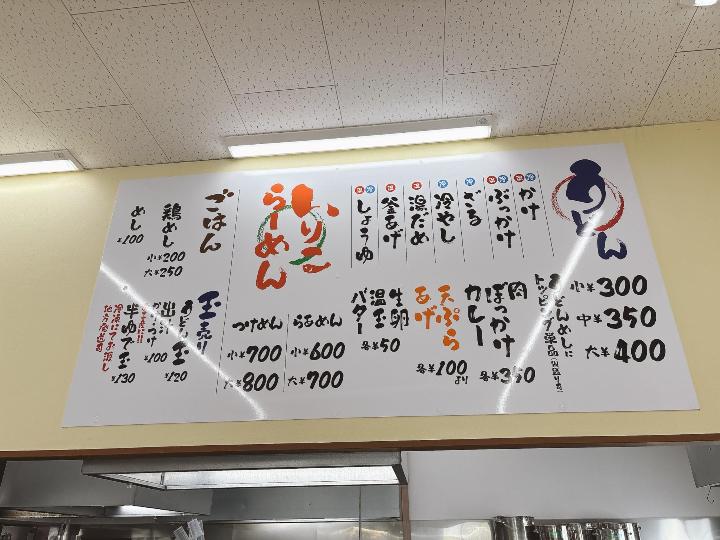 うどん
小¥300
中¥350
大¥400
温 冷 かけ
温 冷 ぶっかけ
冷 ざる
冷 冷やし
温 湯だめ
温 釜あげ
温 冷 しょうゆ
うどんめしに
トッピング単品
肉
ぼっかけ
カレー
各¥350
天ぷら
あげ
各¥100より
生卵
温玉
バター
各¥50
いりこ
らーめん
らぁめん
小¥600
大¥700
つけめん
小¥700
大¥800
ごはん
鶏めし
小¥200
大¥250
めし
¥100
玉売り
うどん玉
¥120
出汁
¥100
半ゆで玉
¥130
冷凍にてお渡し
地方発送可